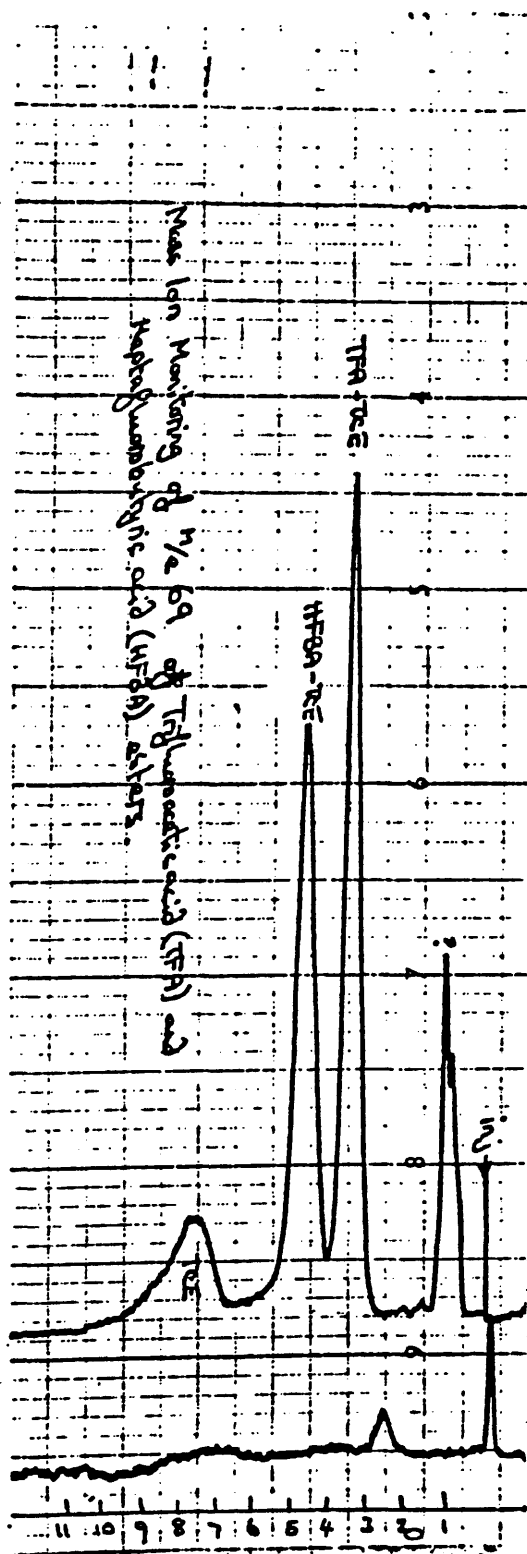 Mass Ion Monitoring of M/e 69 of Trifluoroacetic acid (TFA) and
Heptafluorobutyric acid (HFBA) esters.
TFA-TCE
HFBA-TCE
TCE
?
Inj
3
4
5
6
7
8
9
11 10 9 8 7 6 5 4 3 2 1